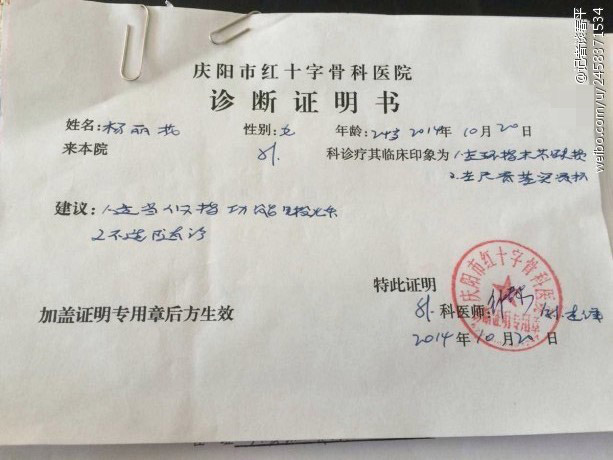 庆阳市红十字骨科医院
诊断证明书
姓名:杨丽 性别:女 年龄:24岁 2014年10月20日
来本院 外 科诊疗其临床印象为 1.左环指末节缺损
2.左尺骨茎突
建议:1.适当 指功能锻炼
2.不适随诊
特此证明
加盖证明专用章后方生效
外科医师:
2014年10月20日
庆阳市红十字骨科医院
@记者谈春平
weibo.com/u/2458871534